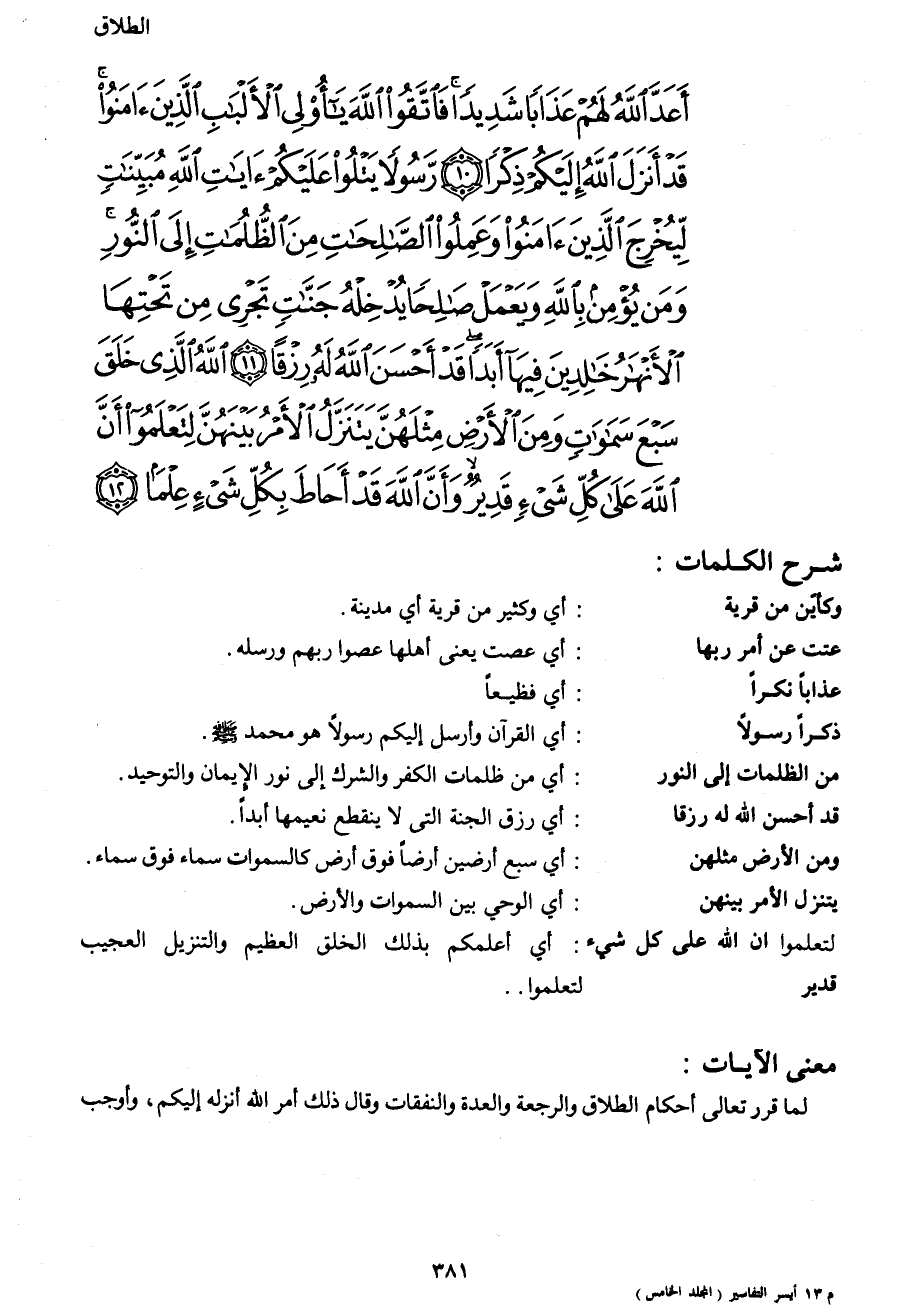 الطلاق
أَعَدَّ ٱللَّهُ لَهُمْ عَذَابًا شَدِيدًا ۖ فَٱتَّقُوا۟ ٱللَّهَ يَـٰٓأُو۟لِى ٱلْأَلْبَـٰبِ ٱلَّذِينَ ءَامَنُوا۟ ۚ
قَدْ أَنزَلَ ٱللَّهُ إِلَيْكُمْ ذِكْرًا ۝١٠ رَّسُولًا يَتْلُوا۟ عَلَيْكُمْ ءَايَـٰتِ ٱللَّهِ مُبَيِّنَـٰتٍ
لِّيُخْرِجَ ٱلَّذِينَ ءَامَنُوا۟ وَعَمِلُوا۟ ٱلصَّـٰلِحَـٰتِ مِنَ ٱلظُّلُمَـٰتِ إِلَى ٱلنُّورِ ۚ
وَمَن يُؤْمِنۢ بِٱللَّهِ وَيَعْمَلْ صَـٰلِحًا يُدْخِلْهُ جَنَّـٰتٍ تَجْرِى مِن تَحْتِهَا
ٱلْأَنْهَـٰرُ خَـٰلِدِينَ فِيهَآ أَبَدًا ۖ قَدْ أَحْسَنَ ٱللَّهُ لَهُۥ رِزْقًا ۝١١ ٱللَّهُ ٱلَّذِى خَلَقَ
سَبْعَ سَمَـٰوَٰتٍ وَمِنَ ٱلْأَرْضِ مِثْلَهُنَّ يَتَنَزَّلُ ٱلْأَمْرُ بَيْنَهُنَّ لِتَعْلَمُوٓا۟ أَنَّ
ٱللَّهَ عَلَىٰ كُلِّ شَىْءٍ قَدِيرٌ وَأَنَّ ٱللَّهَ قَدْ أَحَاطَ بِكُلِّ شَىْءٍ عِلْمًۢا ۝١٢
شرح الكلمات :
وكأيّن من قرية : أي وكثير من قرية أي مدينة .
عتت عن أمر ربها : أي عصت يعنى أهلها عصوا ربهم ورسله .
عذاباً نكراً : أي فظيعاً
ذكراً رسولاً : أي القرآن وأرسل إليكم رسولاً هو محمد ﷺ .
من الظلمات إلى النور : أي من ظلمات الكفر والشرك إلى نور الإيمان والتوحيد .
قد أحسن الله له رزقا : أي رزق الجنة التى لا ينقطع نعيمها أبداً .
ومن الأرض مثلهن : أي سبع أرضين أرضاً فوق أرض كالسموات سماء فوق سماء .
يتنزل الأمر بينهن : أي الوحي بين السموات والأرض .
لتعلموا ان الله على كل شيء : أي أعلمكم بذلك الخلق العظيم والتنزيل العجيب
قدير لتعلموا . .
معنى الآيات :
لما قرر تعالى أحكام الطلاق والرجعة والعدة والنفقات وقال ذلك أمر الله أنزله إليكم ، وأوجب
٣٨١
م ١٣ أيسر التفاسير ( المجلد الخامس )